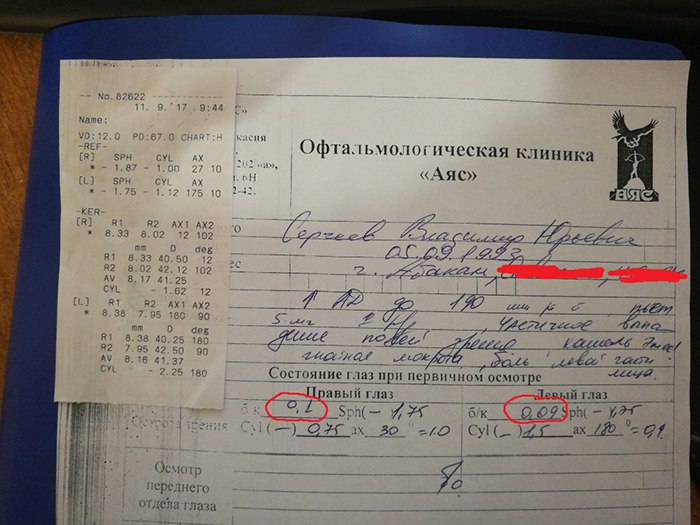 -- No.82622 --
11. 9.'17 9:44
Name:
VD:12.0 PD:67.0 CHART:H
-REF-
[R] SPH CYL AX
* - 1.87 - 1.00 27 10
[L] SPH CYL AX
* - 1.75 - 1.12 175 10
-KER-
[R] R1 R2 AX1 AX2
* 8.33 8.02 12 102
mm D deg
R1 8.33 40.50 12
R2 8.02 42.12 102
AV 8.17 41.25
CYL - 1.62 12
[L] R1 R2 AX1 AX2
* 8.38 7.95 180 90
mm D deg
R1 8.38 40.25 180
R2 7.95 42.50 90
AV 8.16 41.37
CYL - 2.25 180
С»
касия
202 «а»,
2-42.
Офтальмологическая клиника
«Аяс»
АЯС
Сергеев Владимир Юрьевич
05.09.1993
г. Абакан,
↑ АД до 190
5 мг частичное
зрение кашель
гнойная мокрота, боль левой части
лица.
Состояние глаз при первичном осмотре
Правый глаз
б/к 0,1 Sph(-) 1,75
Острота зрения Cyl (-) 0,75 ax 30° =1.0
Левый глаз
б/к 0,09 Sph(-) 1,75
Cyl (-) 1,5 ax 180° =0,9.
Осмотр
переднего
отдела глаза